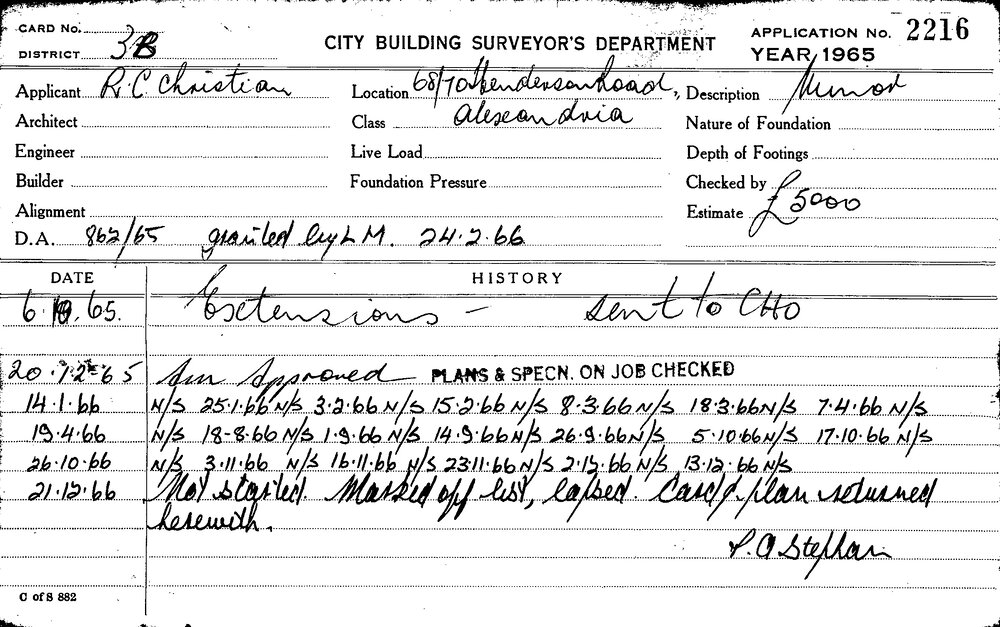 CARD No.
DISTRICT 3B
CITY BUILDING SURVEYOR'S DEPARTMENT
APPLICATION No. 2216
YEAR, 1965
Applicant R.C. Christian
Location 68/70 Henderson Road,
Description Minor
Architect
Class Alexandria
Nature of Foundation
Engineer
Live Load
Depth of Footings
Builder
Foundation Pressure
Checked by
Alignment
Estimate £5000
D.A. 862/65 granted by L M. 24.2.66
DATE HISTORY
6.10.65. Extensions - sent to CHO
20.12.65 Approved PLANS & SPECN. ON JOB CHECKED
14.1.66 N/S 25.1.66 N/S 3.2.66 N/S 15.2.66 N/S 8.3.66 N/S 18.3.66 N/S 7.4.66 N/S
19.4.66 N/S 18-8.66 N/S 1.9.66 N/S 14.9.66 N/S 26.9.66 N/S 5.10.66 N/S 17.10.66 N/S
26.10.66 N/S 3.11.66 N/S 16.11.66 N/S 23.11.66 N/S 2.12.66 N/S 13.12.66 N/S
21.12.66 Not started. Marked off list, lapsed. Card & plan returned
herewith.
P. A Stephan
C of S 882